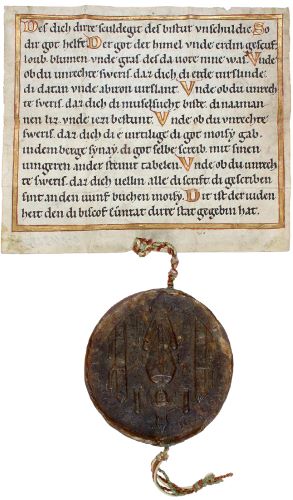 Des dich dirre sculdeget des bistur vnschuldic. So
dir got helfe. Der got der himel vnde erdin gescuf.
loub. blumen. vnde gras. des da uore nine was. Vnde
ob du unrechte sweris. daz dich di erde uirslinde.
di datan vnde abiron uirslant. Vnde ob du unrech
te sveris. daz dich di muselsucht biste. di naaman
nen liz. vnde iezi bestunt. Vnde ob du unrechte
sweris. daz dich di e uirtilige di got moisy gab.
in dem berge synay. di got selbe screib mit sinen
uingeren an der steinir tabelen. Vnde ob du unrech
te sweris. daz dich uellin alle di scrift. di gescriben
sint an den uunf buchen moisy. Dit ist der iuden
heit den di biscof Cunrat dirre stat gegebin hat.